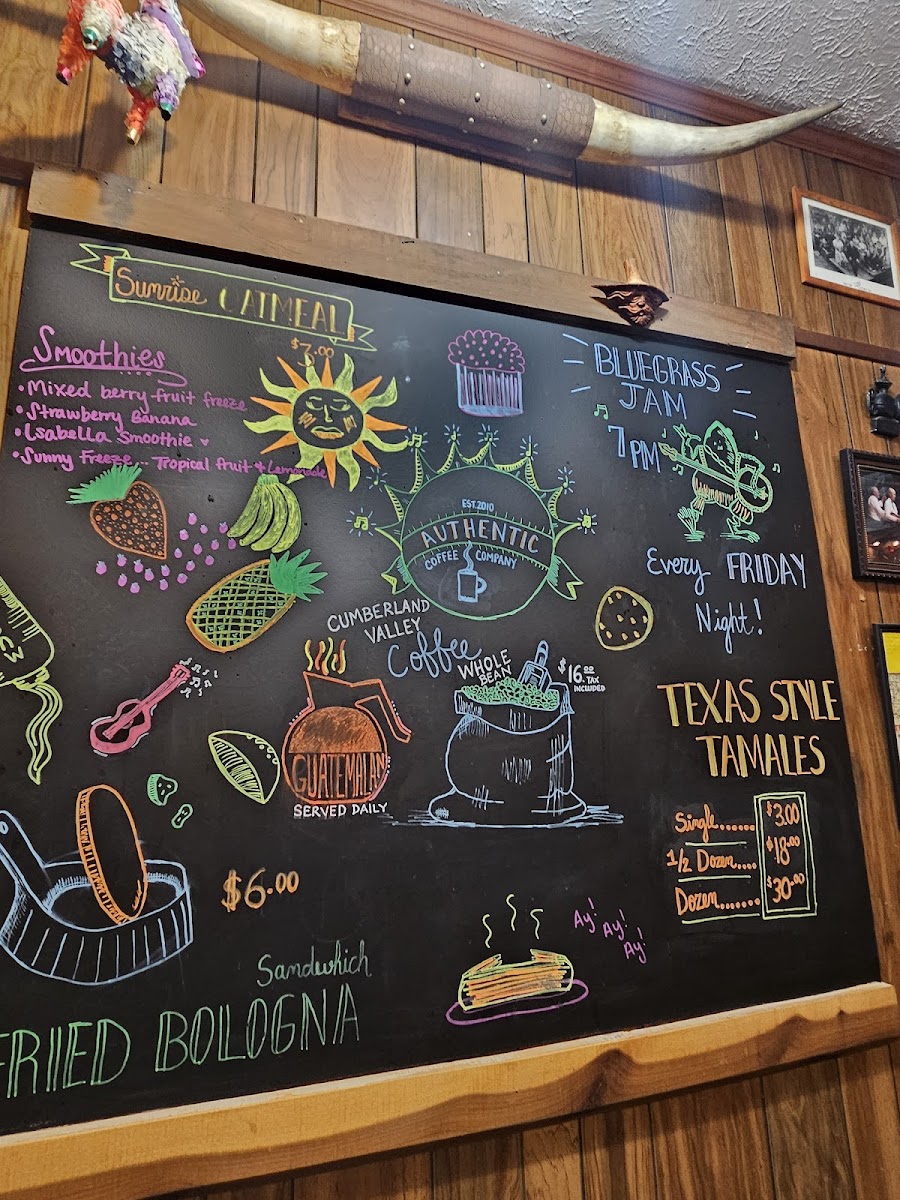 Sunrise OATMEAL
$3.00
Smoothies
• Mixed berry-fruit freeze
• Strawberry Banana
• Isabella Smoothie ♥
• Sunny Freeze... Tropical fruit & Lemonade
EST. 2010
AUTHENTIC
COFFEE COMPANY
BLUEGRASS
JAM
7 PM
Every FRIDAY
Night!
CUMBERLAND
VALLEY
Coffee
WHOLE
BEAN
$16.00
TAX
INCLUDED
GUATEMALAN
SERVED DAILY
TEXAS STYLE
TAMALES
Single...... $3.00
1/2 Dozen.... $18.00
Dozen....... $30.00
$6.00
Sandwhich
FRIED BOLOGNA
Ay!
Ay!
Ay!